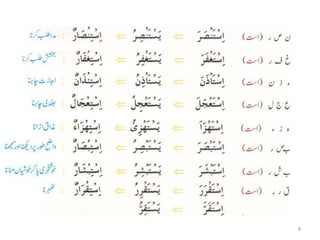 ن ص ر (است) اِسْتَنْصَرَ ⇐ يَسْتَنْصِرُ ⇐ اِسْتِنْصَارٌ : مدد طلب کرنا
غ ف ر (است) اِسْتَغْفَرَ ⇐ يَسْتَغْفِرُ ⇐ اِسْتِغْفَارٌ : بخشش طلب کرنا
ء ذ ن (است) اِسْتَأْذَنَ ⇐ يَسْتَأْذِنُ ⇐ اِسْتِئْذَانٌ : اجازت چاہنا
ع ج ل (است) اِسْتَعْجَلَ ⇐ يَسْتَعْجِلُ ⇐ اِسْتِعْجَالٌ : جلدی چاہنا
ه ز ء (است) اِسْتَهْزَأَ ⇐ يَسْتَهْزِئُ ⇐ اِسْتِهْزَاءٌ : مذاق اڑانا
ب ص ر (است) اِسْتَبْصَرَ ⇐ يَسْتَبْصِرُ ⇐ اِسْتِبْصَارٌ : واضح طور پر دیکھنا اور سمجھنا
ب ش ر (است) اِسْتَبْشَرَ ⇐ يَسْتَبْشِرُ ⇐ اِسْتِبْشَارٌ : خوشخبری پا کر خوشیاں منانا
ق ر ر (است) اِسْتَقْرَرَ ⇐ يَسْتَقْرِرُ ⇐ اِسْتِقْرَارٌ : ٹھہرنا
اِسْتَقَرَّ ⇐ يَسْتَقِرُّ